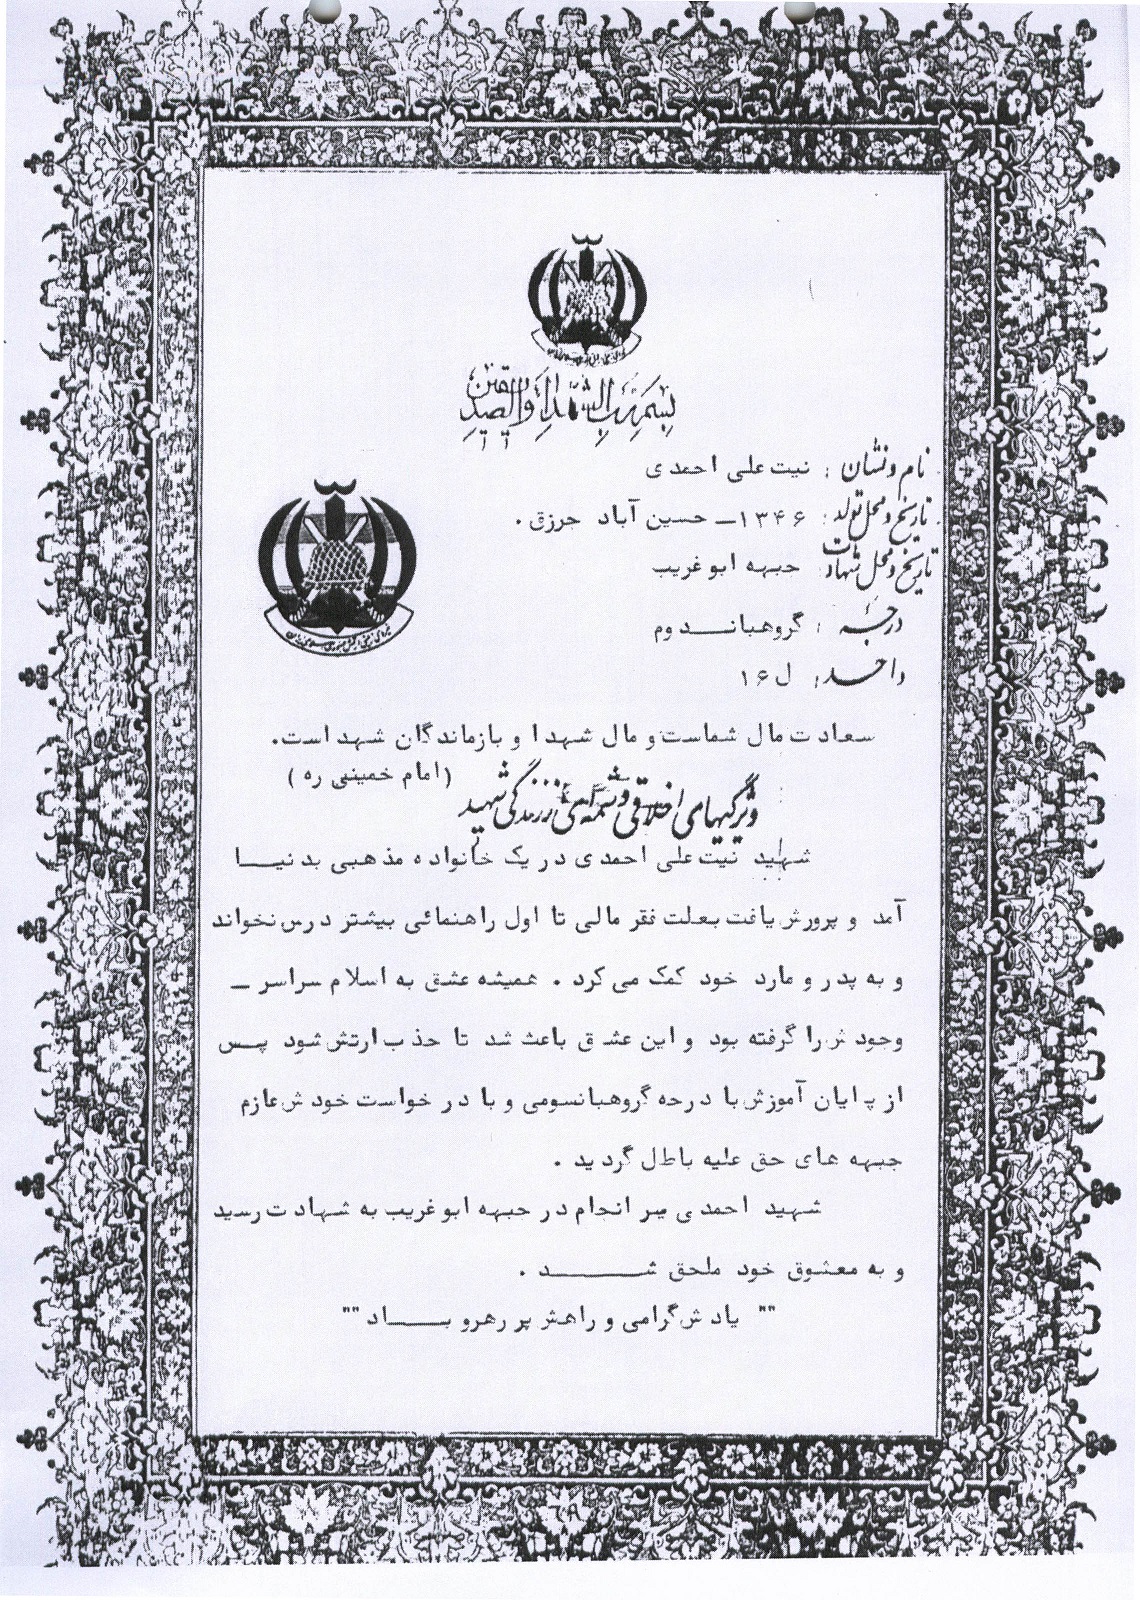 بسم رب الشهداء والصدیقین
نام و نشان : نیت علی احمدی
تاریخ و محل تولد : ۱۳۴۶ـ حسین آباد جرزق .
تاریخ و محل شهادت : جبهه ابوغریب
درجه : گروهبانـــدوم
واحد : ل ۱۶
سعادت مال شماست و مال شهدا و بازماندگان شهد است.
(امام خمینی ره )
ویژگیهای اخلاقی و شمه‌ای از زندگی شهید
شهید نیت علی احمدی در یک خانواده مذهبی بدنیـــا
آمد و پرورش یافت بعلت فقر مالی تا اول راهنمائی بیشتر درس نخواند
و به پدر و مارد خود کمک می کرد . همیشه عشق به اسلام سراسر ـ
وجودش را گرفته بود و این عشق باعث شد تا جذب ارتش شود پس
از پایان آموزش با درجه گروهبانسومی و با درخواست خودش عازم
جبهه های حق علیه باطل گردید .
شهید احمدی سر انجام در جبهه ابوغریب به شهادت رسید
و به معشوق خود ملحق شـــــد .
"" یادش گرامی و راهش پر رهرو بـــاد ""